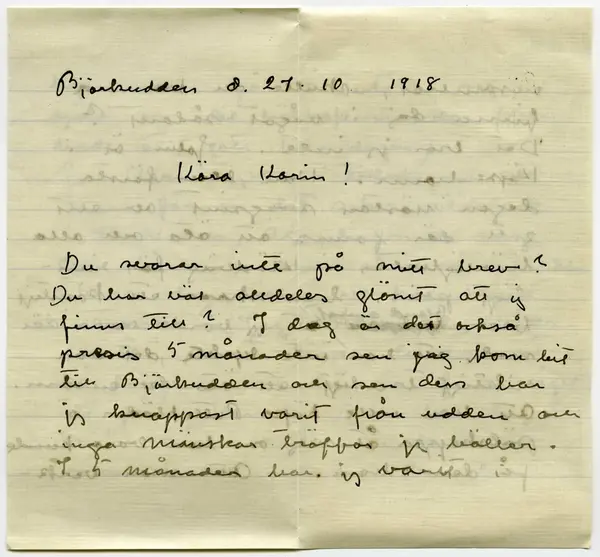 Björkudden d. 27. 10. 1918
Kära Karin!
Du svarar inte på mitt brev?
Du har väl alldeles glömt att jg
finns till? I dag är det också
precis 5 månader sen jag kom hit
till Björkudden och sen dess har
jg knappast varit från udden och
inga mänskor träffas jg häller.
I 5 månader har jg varit